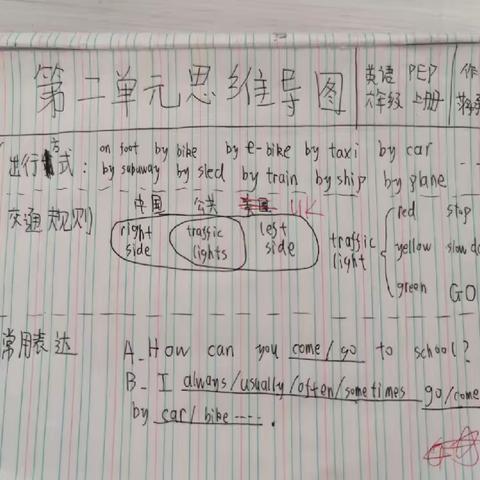 第二单元思维导图
英语 PEP
六年级 上册
作
出行方式：
on foot by bike by e-bike by taxi by car
by subuway by sled by train by ship by plane
交通规则
中国 公共 UK
right side
traffic lights
left side
traffic light
red stop
yellow slow do
green GO
常用表达
A. How can you come/go to school?
B. I always/usually/often/sometimes go/come
by car/bike ----.